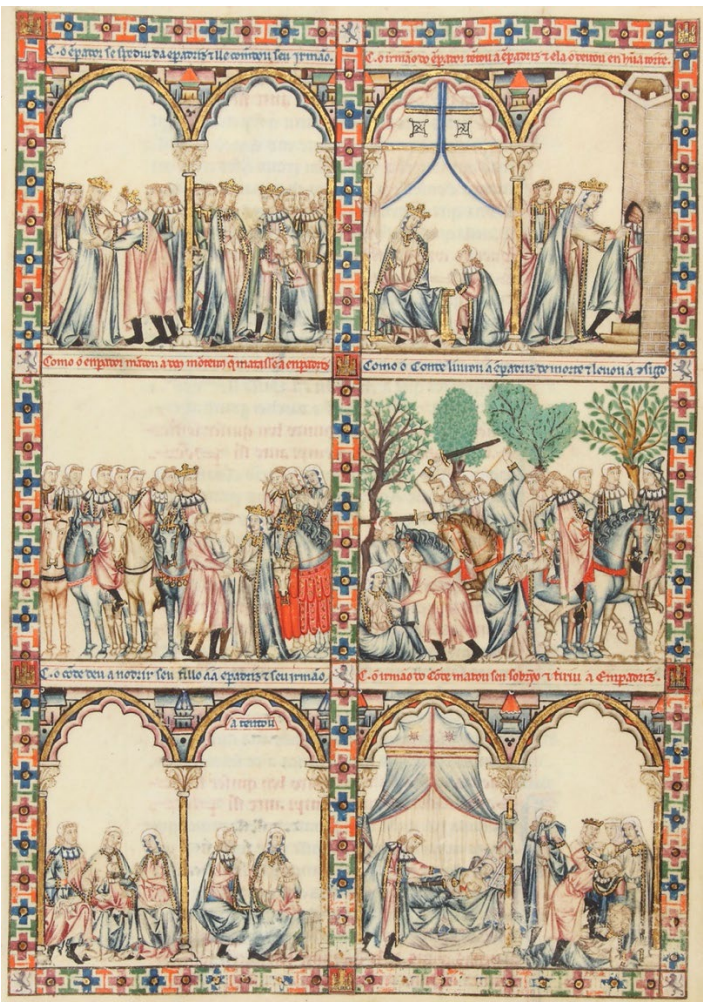 C. o ẽpador se spediu da ẽpadriz ⁊ lle comẽdou seu yrmão.
C. o irmão do ẽpador tentou a ẽpadriz ⁊ ela o deitou en hũa torre.
Como o enpador mãdou a dos mõteiros q̃ matasse a enpadriz
Como o Conde livrou a ẽpadriz de morte ⁊ levou a
C. o cõde deu a nodrir seu fillo aa ẽpadriz ⁊ seu irmão,
a tentou
C. o irmão do Cõde matou seu sobrỹo ⁊ a Enpadriz.